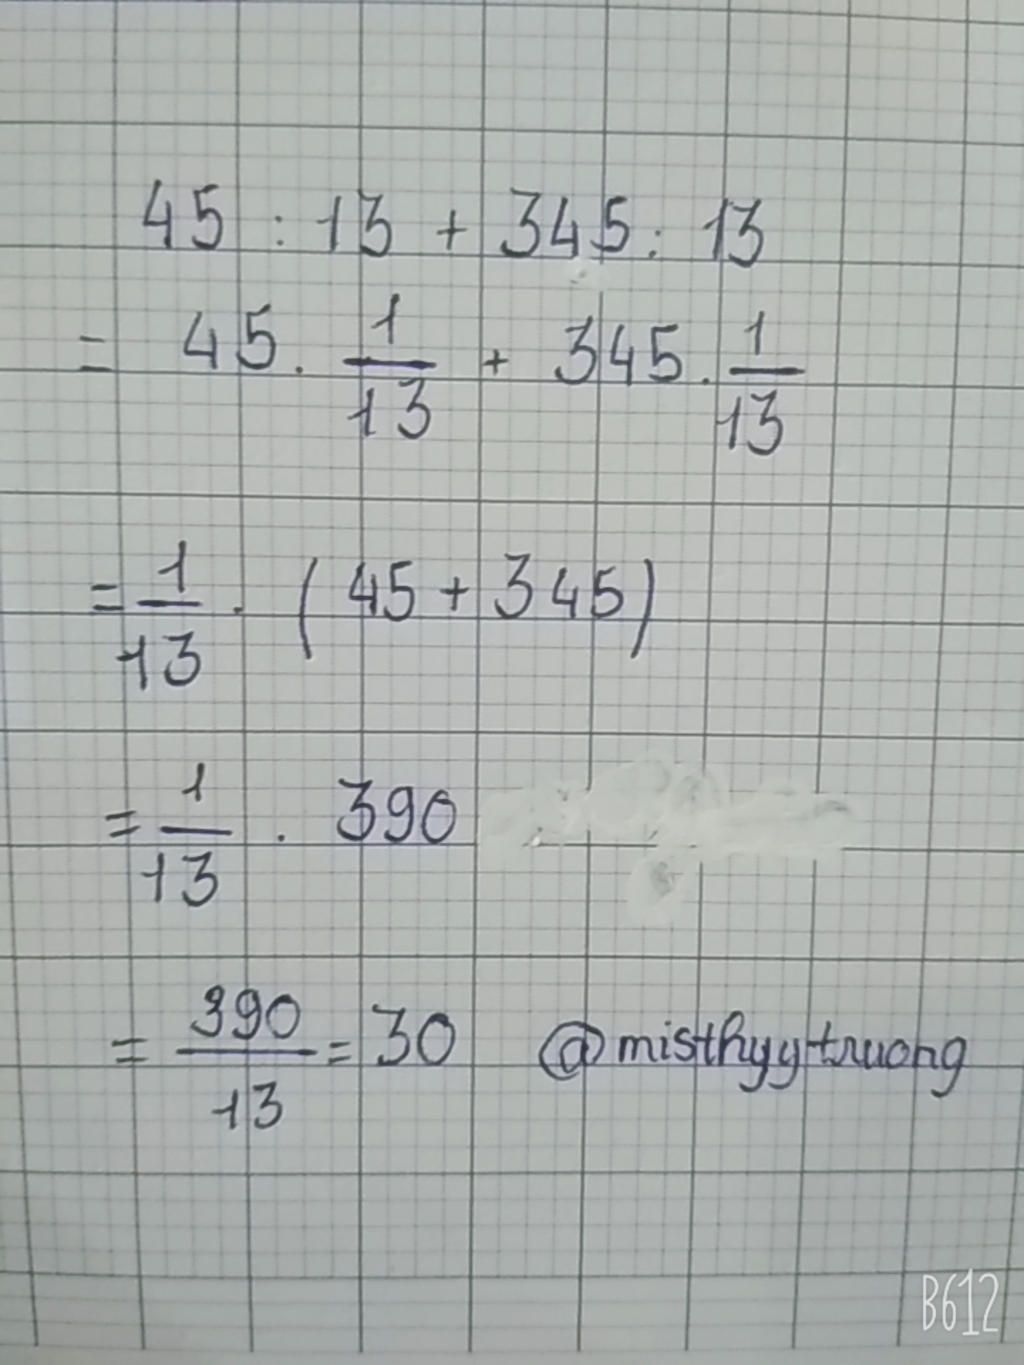 45 : 13 + 345 : 13
= 45 . 1/13 + 345 . 1/13
= 1/13 . (45 + 345)
= 1/13 . 390
= 390/13 = 30 @misthyytruong
B612